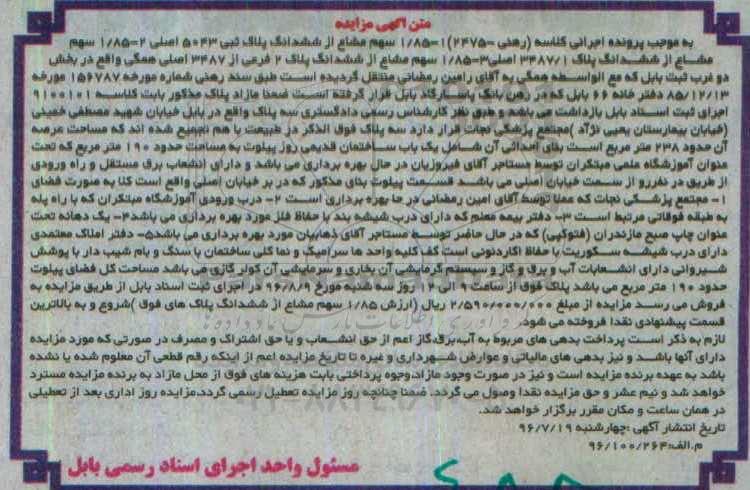 متن آگهی مزایده
به موجب پرونده اجرائی کلاسه (رهنی =۲۴۷۵)۱=۱/۸۵ سهم مشاع از ششدانگ پلاک ثبی ۵۰۴۳ اصلی ۲=۱/۸۵ سهم
مشاع از ششدانگ پلاک ۳۴۸۷/۱ اصلی۳=۱/۸۵ سهم مشاع از ششدانگ پلاک ۲ فرعی از ۳۴۸۷ اصلی همگی واقع در بخش
دو غرب ثبت بابل که مع الواسطه همگی به آقای رامین رمضانی منتقل گردیده است طبق سند رهنی شماره مورخه ۱۵۶۷۸۷ مورخه
۸۵/۱۲/۱۳ دفتر خانه ۶۶ بابل که در رهن بانک پاسارگاد بابل قرار گرفته است ضمنا مازاد پلاک مذکور بابت کلاسه ۹۱۰۰۱۰۱
اجرای ثبت اسناد بابل بازداشت می باشد و طبق نظر کارشناس رسمی دادگستری سه پلاک واقع در بابل خیابان شهید مصطفی خمینی
(خیابان بیمارستان یحیی نژاد )مجتمع پزشکی نجات قرار دارد سه پلاک فوق الذکر در طبیعت با هم تجمیع شده اند که مساحت عرصه
آن حدود ۲۳۸ متر مربع است بنای احداثی آن شامل یک باب ساختمان قدیمی روز پیلوت به مساحت حدود ۱۹۰ متر مربع که تحت
عنوان آموزشگاه علمی مبتکران توسط مستاجر آقای فیروزیان در حال بهره برداری می باشد و دارای انشعاب برق مستقل و راه ورودی
از طریق در نفررو از سمت خیابان اصلی می باشد قسمت پیلوت بنای مذکور که در بر خیابان اصلی واقع است کلا به صورت فضای
۱- مجتمع پزشکی نجات که عملا توسط آقای امین رمضانی در حا بهره برداری است ۲- درب ورودی آموزشگاه مبتکران که با راه پله
به طبقه فوقانی مرتبط است ۳- دفتر بیمه معلم که دارای درب شیشه بند با حفاظ فلز مورد بهره برداری می باشد۴- یک دهانه تحت
عنوان چاپ صبح مازندران (فتوکپی) که در حال حاضر توسط مستاجر آقای ذهابیان مورد بهره برداری می باشد۵- دفتر املاک معتمدی
دارای درب شیشه سکوریت با حفاظ آکاردئونی است کف کلیه واحد ها سرامیک و نما کلی ساختمان با سنگ و بام شیب دار با پوشش
شیروانی دارای انشعابات آب و برق و گاز و سیستم گرمایشی آن بخاری و سرمایشی آن کولر گازی می باشد مساحت کل فضای پیلوت
حدود ۱۹۰ متر مربع می باشد پلاک فوق از ساعت ۹ الی ۱۲ روز سه شنبه مورخ ۹۶/۸/۹ در اجرای ثبت اسناد بابل از طریق مزایده به
فروش می رسد مزایده از مبلغ ۲/۵۹۰/۰۰۰/۰۰۰ ریال (ارزش ۱/۸۵ سهم مشاع از ششدانگ پلاک های فوق )شروع و به بالاترین
قسمت پیشنهادی نقدا فروخته می شود.
لازم به ذکر است پرداخت بدهی های مربوط به آب،برق،گاز اعم از حق انشعاب و یا حق اشتراک و مصرف در صورتی که مورد مزایده
دارای آنها باشد و نیز بدهی های مالیاتی و عوارض شهرداری و غیره تا تاریخ مزایده اعم از اینکه رقم قطعی آن معلوم شده یا نشده
باشد به عهده برنده مزایده است و نیز در صورت وجود مازاد،وجوه پرداختی بابت هزینه های فوق از محل مازاد به برنده مزایده مسترد
خواهد شد و نیم عشر و حق مزایده نقدا وصول می گردد. ضمنا چنانچه روز مزایده تعطیل رسمی گردد،مزایده روز اداری بعد از تعطیلی
در همان ساعت و مکان مقرر برگزار خواهد شد.
تاریخ انتشار آگهی :چهارشنبه ۹۶/۷/۱۹
م.الف:۹۶/۱۰۰/۲۶۴
مسئول واحد اجرای اسناد رسمی بابل